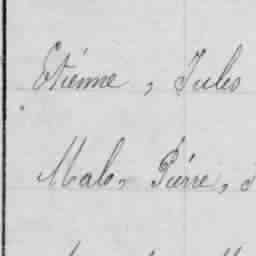 Etienne, Jules
Malo, Pierre,